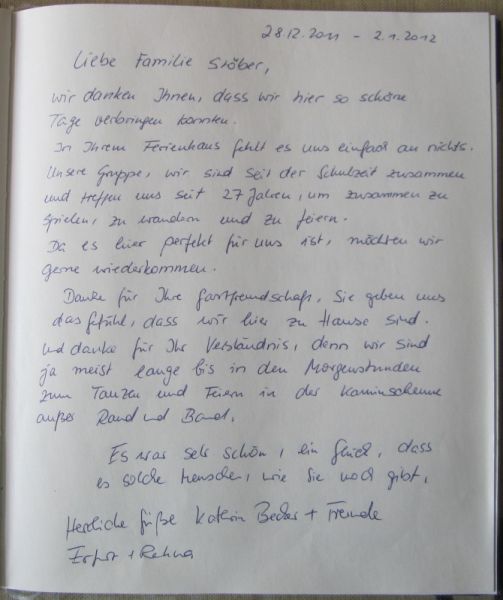 28.12.2011 - 2.1.2012
Liebe Familie Stöber,
wir danken Ihnen, dass wir hier so schöne
Tage verbringen konnten.
In Ihrem Ferienhaus fehlt es uns einfach an nichts.
Unsere Gruppe, wir sind seit der Schulzeit zusammen
und treffen uns seit 27 Jahren, um zusammen zu
spielen, zu wandern und zu feiern.
Da es hier perfekt für uns ist, möchten wir
gerne wiederkommen.
Danke für Ihre Gastfreundschaft, Sie geben uns
das Gefühl, dass wir hier zu Hause sind.
Und danke für Ihr Verständnis, denn wir sind
ja meist lange bis in den Morgenstunden
zum Tanzen und Feiern in der Kaminscheune
außer Rand und Band.
Es war sehr schön, ein Glück, dass
es solche Menschen, wie Sie noch gibt.
Herzliche Grüße Kathrin Becker + Freunde
Erfurt +